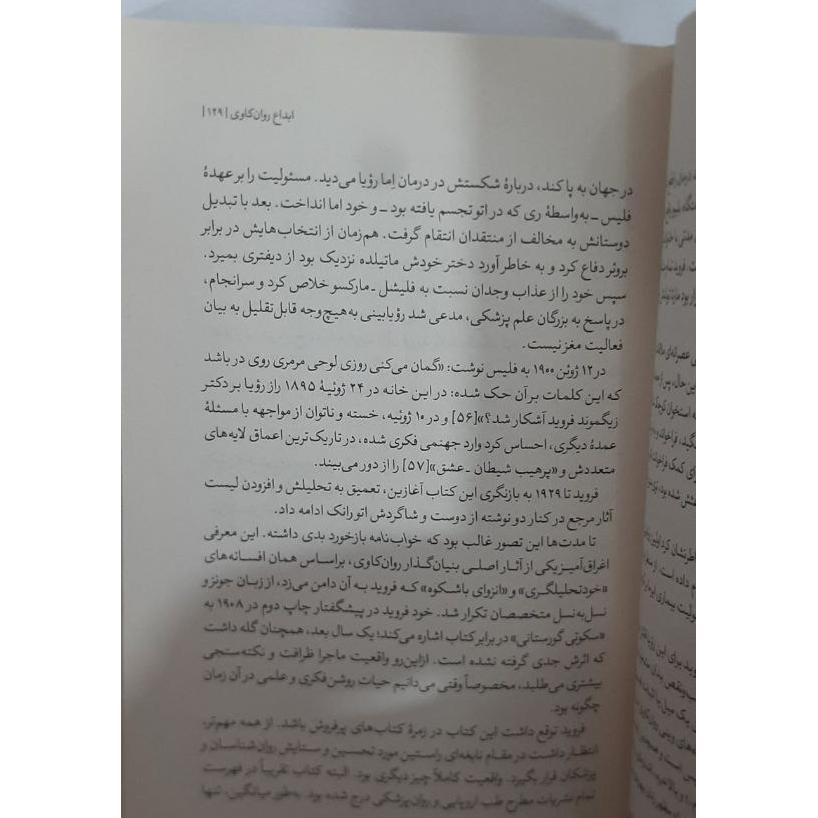 ابداع روان‌کاوی | ۱۲۹ |
در جهان به پا کند، دربارهٔ شکستش در درمان اِما رؤیا می‌دید. مسئولیت را بر عهدهٔ
فلیس ـ به‌واسطهٔ ری که در اتو تجسم یافته بود ـ و خود اما انداخت. بعد با تبدیل
دوستانش به مخالف از منتقدان انتقام گرفت. هم‌زمان از انتخاب‌هایش در برابر
بروئر دفاع کرد و به خاطر آورد دختر خودش ماتیلده نزدیک بود از دیفتری بمیرد.
سپس خود را از عذاب وجدان نسبت به فلیشل ـ مارکسو خلاص کرد و سرانجام،
در پاسخ به بزرگان علم پزشکی، مدعی شد رؤیابینی به‌هیچ‌وجه قابل‌تقلیل به بیان
فعالیت مغز نیست.
در ۱۲ ژوئن ۱۹۰۰ به فلیس نوشت: «گمان می‌کنی روزی لوحی مرمری روی در باشد
که این کلمات بر آن حک شده: در این خانه در ۲۴ ژوئیهٔ ۱۸۹۵ راز رؤیا بر دکتر
زیگموند فروید آشکار شد؟»[۵۶] و در ۱۰ ژوئیه، خسته و ناتوان از مواجهه با مسئلهٔ
عمدهٔ دیگری، احساس کرد وارد جهنمی فکری شده، در تاریک‌ترین اعماق لایه‌های
متعددش و «پرهیب شیطان ـ عشق»[۵۷] را از دور می‌بیند.
فروید تا ۱۹۲۹ به بازنگری این کتاب آغازین، تعمیق به تحلیلش و افزودن لیست
آثار مرجع در کنار دو نوشته از دوست و شاگردش اتو رانک ادامه داد.
تا مدت‌ها این تصور غالب بود که خواب‌نامه بازخورد بدی داشته. این معرفی
اغراق‌آمیز یکی از آثار اصلی بنیان‌گذار روان‌کاوی، براساس همان افسانه‌های
«خودتحلیلگری» و «انزوای باشکوه» که فروید به آن دامن می‌زد، از زبان جونز و
نسل‌به‌نسل متخصصان تکرار شد. خود فروید در پیشگفتار چاپ دوم در ۱۹۰۸ به
«سکوتی گورستانی» در برابر کتاب اشاره می‌کند؛ یک سال بعد، همچنان گله داشت
که اثرش جدی گرفته نشده است. ازاین‌رو واقعیت ماجرا ظرافت و نکته‌سنجی
بیشتری می‌طلبد، مخصوصاً وقتی می‌دانیم حیات روشن‌فکری و علمی در آن زمان
چگونه بود.
فروید توقع داشت این کتاب در زمرهٔ کتاب‌های پرفروش باشد. از همه مهم‌تر،
انتظار داشت در مقام نابغه‌ای راستین مورد تحسین و ستایش روان‌شناسان و
پزشکان قرار بگیرد. واقعیت کاملاً چیز دیگری بود. البته کتاب تقریباً در فهرست
تمام نشریات مطرح طب اروپایی و روان‌پزشکی درج شده بود. به‌طور میانگین، تنها